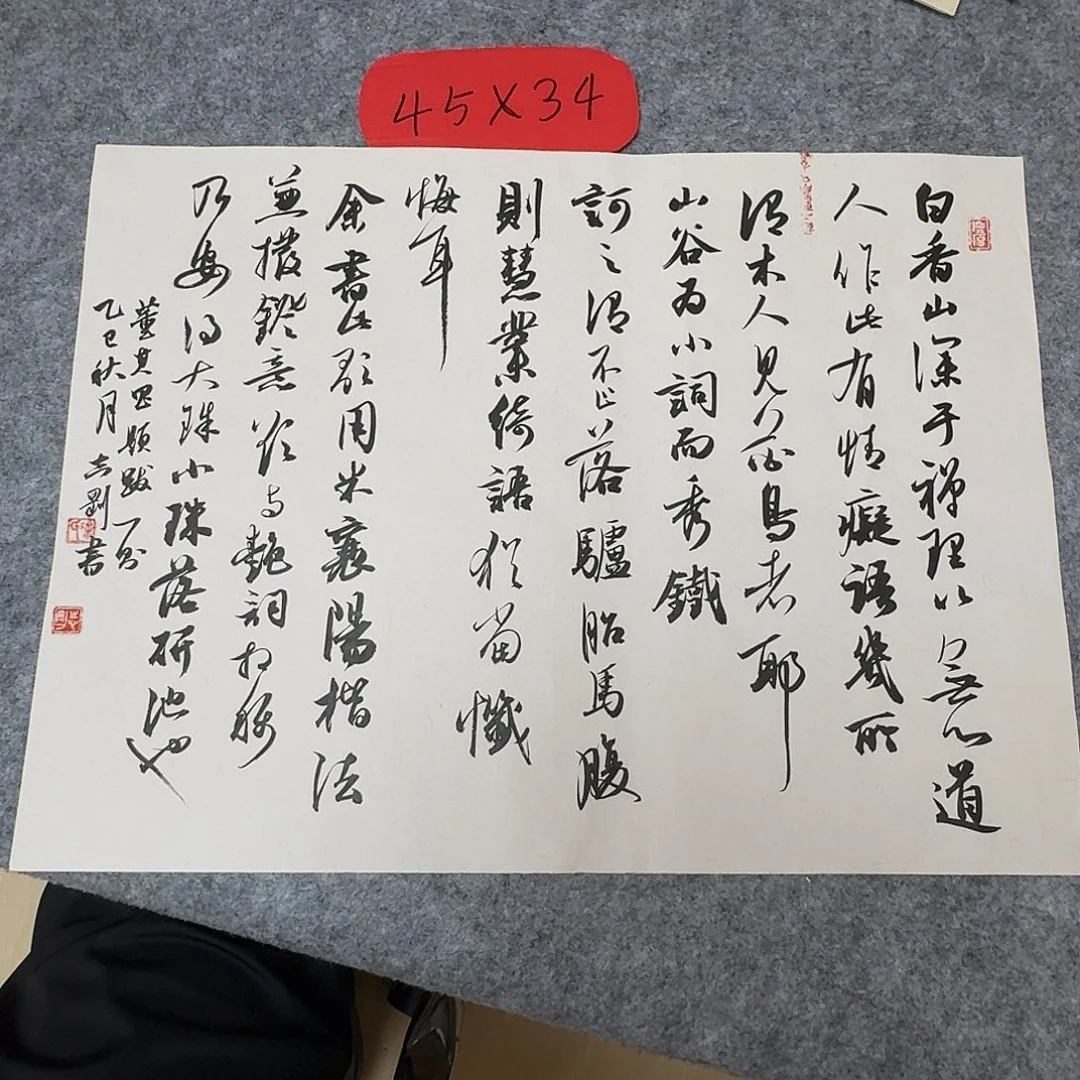 45X34
白香山深于禪理以無心道
人作此有情癡語幾所
謂木人見花鳥者耶
山谷為小詞而秀鐵
訶之謂不止落驢胎馬腹
則慧業綺語猶當懺
悔耳
余書此歌用米襄陽楷法
兼撥鐙意欲與艷詞相稱
乃安得大珠小珠落研池也
董其昌題跋一則
乙巳秋月志剛書